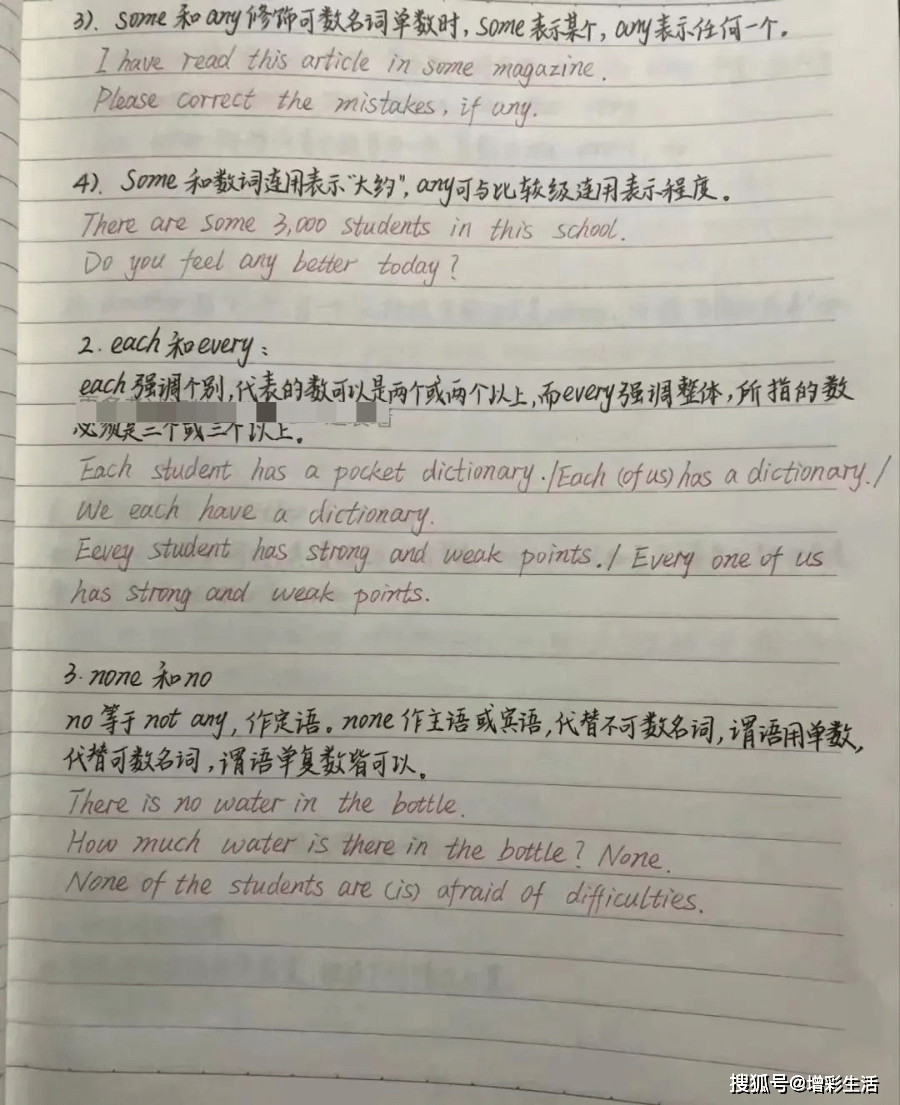 3). some 和 any 修饰可数名词单数时, some 表示某个, any 表示任何一个。
I have read this article in some magazine.
Please correct the mistakes, if any.
4). Some 和数词连用表示“大约”, any 可与比较级连用表示程度。
There are some 3,000 students in this school.
Do you feel any better today?
2. each 和 every:
each 强调个别, 代表的数可以是两个或两个以上, 而 every 强调整体, 所指的数
必须是三个或三个以上。
Each student has a pocket dictionary./Each (of us) has a dictionary./
We each have a dictionary.
Eevey student has strong and weak points./ Every one of us
has strong and weak points.
3. none 和 no
no 等于 not any, 作定语。none 作主语或宾语, 代替不可数名词, 谓语用单数,
代替可数名词, 谓语单复数皆可以。
There is no water in the bottle.
How much water is there in the bottle? None.
None of the students are (is) afraid of difficulties.
搜狐号@增彩生活